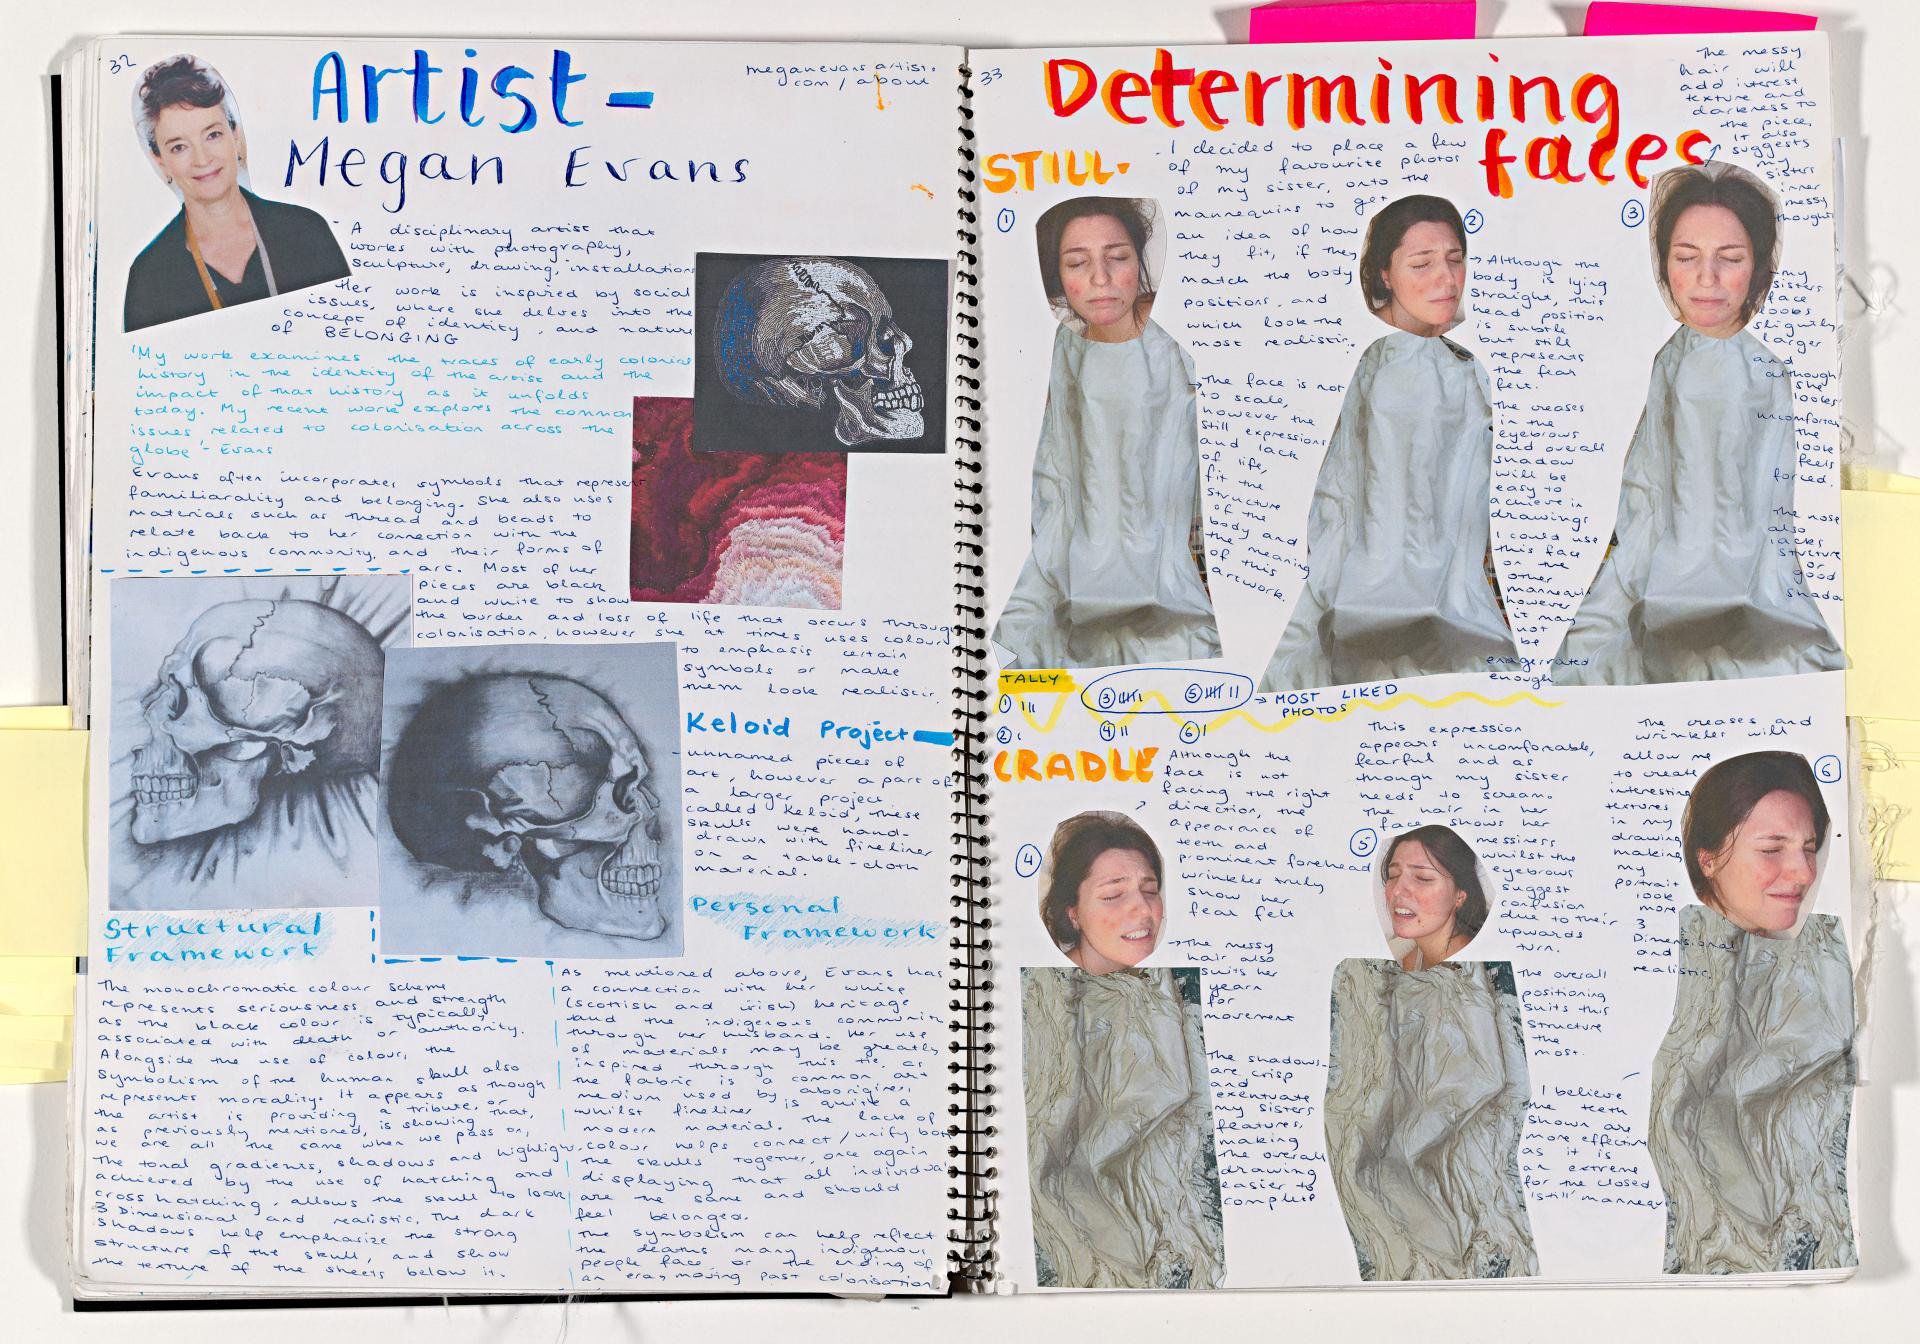 32
Artist-
Megan Evans
meganevansartist.
com/about
- A disciplinary artist that
works with photography,
sculpture, drawing, installation
- Her work is inspired by social
issues, where she delves into the
concept of identity, and nature
of BELONGING
'My work examines the traces of early colonial
history in the identity of the artist and the
impact of that history as it unfolds
today. My recent work explores the common
issues related to colonisation across the
globe' - Evans
Evans often incorporates symbols that represent
familiarality and belonging. She also uses
materials such as thread and beads to
relate back to her connection with the
indigenous community, and their forms of
art. Most of her
pieces are black
and white to show
the burden and loss of life that occurs through
colonisation, however she at times uses colour
to emphasis certain
symbols or make
them look realistic.
Keloid Project
- unnamed pieces of
art, however a part of
a larger project
called Keloid, these
skulls were hand-
drawn with fineliner
on a table-cloth
material.
Structural
Framework
The monochromatic colour scheme
represents seriousness and strength
as the black colour is typically
associated with death or authority.
Alongside the use of colour, the
symbolism of the human skull also
represents mortality. It appears as though
the artist is providing a tribute, or
as previously mentioned, is showing that,
we are all the same when we pass on,
The tonal gradients, shadows and highlights,
achieved by the use of hatching and
cross hatching, allows the skull to look
3 Dimensional and realistic. The dark
shadows help emphasize the strong
structure of the skull, and show
the texture of the sheets below it.
Personal
Framework
As mentioned above, Evans has
a connection with her white
(scottish and irish) heritage
and the indigenous community
through her husband. Her use
of materials may be greatly
inspired through this tie, as
the fabric is a common art
medium used by aborigines,
whilst fineliner is quite a
modern material. The lack of
colour helps connect/unify both
the skulls together, once again
displaying that all individuals
are the same and should
feel belonged.
The symbolism can help reflect
the deaths many indigenous
people face, or the ending of
an era, moving past colonisation
33
Determining
faces
STILL-
- I decided to place a few
of my favourite photos
of my sister, onto the
mannequins to get
an idea of how
they fit, if they
match the body
positions, and
which look the
most realistic.
The messy
hair will
add interest
texture and
darkness to
the piece,
It also
suggests
my
sisters
inner
messy
thoughts
1
→ The face is not
to scale,
however the
still expression
and lack
of life,
fit the
structure
of the
body and
the meaning
of this
artwork.
2
→ Although the
body is lying
straight, this
head position
is subtle
but still
represents
the fear
felt.
The creases
in the
eyebrows
and overall
shadow
will be
easy to
achieve in
drawings
I could use
this face
on the
other
mannequin
however
it may
not
be
exagerrated
enough.
3
my
sisters
face
looks
slightly
larger
and
although
she
looks
uncomfortable
the
look
feels
forced.
The nose
also
lacks
structure
or
good
TALLY
1 III
2 I
3
4 II
5
6 I
→ MOST LIKED
PHOTOS
CRADLE
4
Although the
face is not
facing the right
direction, the
appearance of
teeth and
prominent forehead
wrinkles truly
show her
fear felt
→ The messy
hair also
suits her
yearn
for
movement
The shadows
are crisp
and
exentuate
my sisters
features,
making
the overall
drawing
easier to
complete
5
This expression
appears uncomfortable,
fearful and as
though my sister
needs to scream.
The hair in her
face shows her
messiness
whilst the
eyebrows
suggest
confusion
due to their
upwards
turn.
The overall
positioning
suits this
structure
the
most.
I believe
the teeth
shown are
more effective
as it is
an extreme
for the closed
'still' mannequin
6
The creases and
wrinkles will
allow me
to create
interesting
textures
in my
drawing
making
my
portrait
look
more
3
Dimensional
and
realistic.